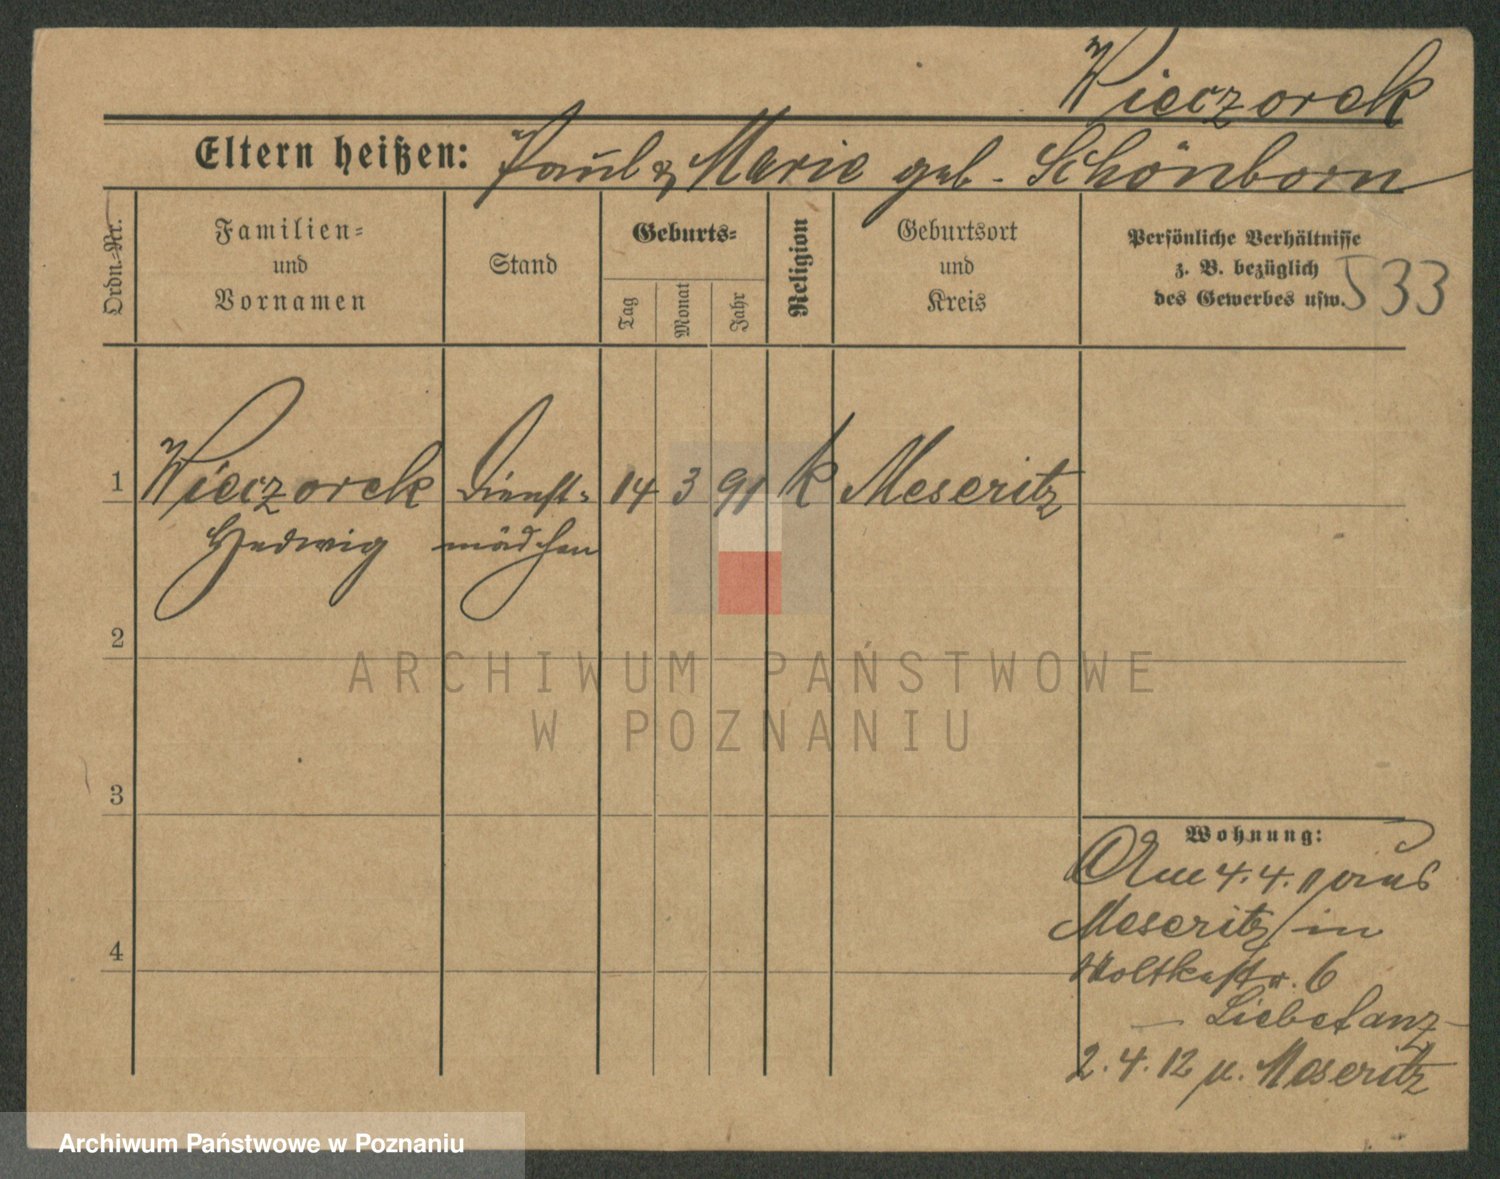 Wieczorek
Eltern heißen: Paul & Marie geb. Schönborn
Ordn.-Nr.
Familien-
und
Vornamen
Stand
Geburts-
Tag
Monat
Jahr
Religion
Geburtsort
und
Kreis
Persönliche Verhältnisse
z. B. bezüglich
des Gewerbes usw.
533
1 Wieczorek Dienst- 14 3 91 k Meseritz
Hedwig mädchen
2
3
4
Wohnung:
Am 4.4.11 aus
Meseritz in
Moltkestr. 6
- Liebetanz -
2.4.12 n. Meseritz
ARCHIWUM PAŃSTWOWE
W POZNANIU
Archiwum Państwowe w Poznaniu